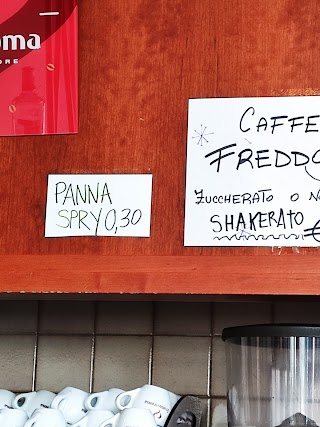 PANNA
SPRY 0,30
CAFFE
FREDDO
ZUCCHERATO O
SHAKERATO €